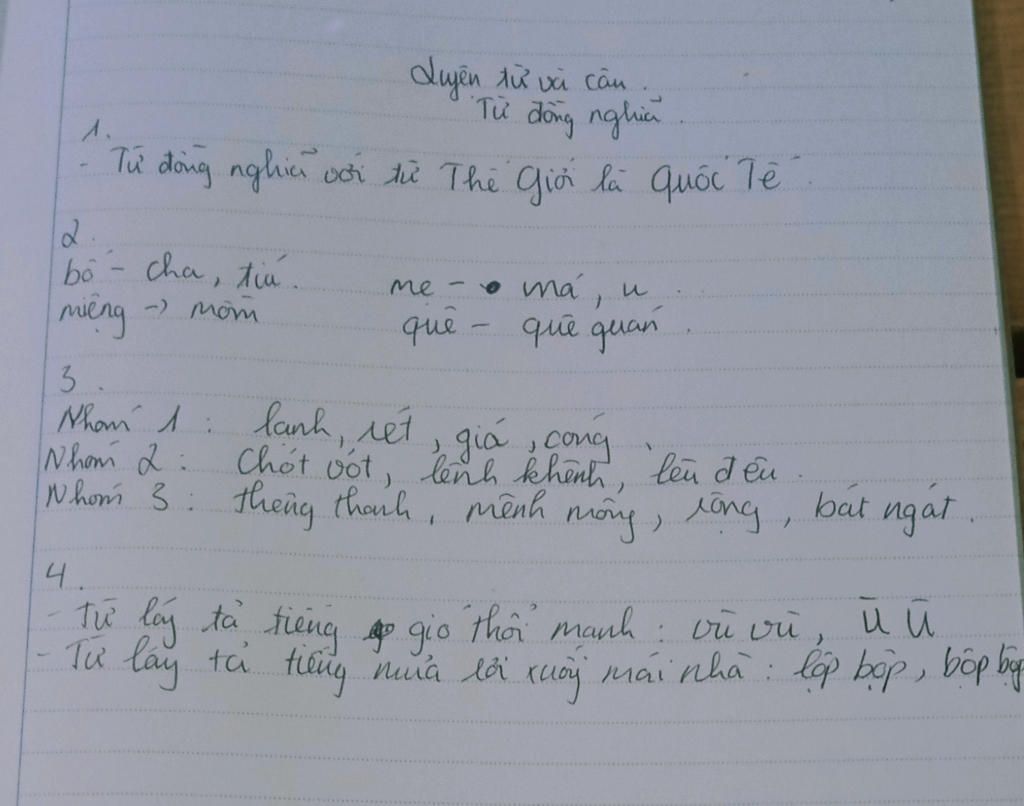 Luyện từ và câu.
Từ đồng nghĩa.
1.
- Từ đồng nghĩa với từ Thế Giới là Quốc Tế.
2.
bố - cha, tiá. mẹ - má, u.
miệng -> mồm quê - quê quán.
3.
Nhóm 1: lạnh, rét, giá, cóng.
Nhóm 2: Chót vót, lênh khênh, lêu đêu.
Nhóm 3: thênh thang, mênh mông, rộng, bát ngát.
4.
- Từ láy tả tiếng gió thổi mạnh: vù vù, Ù Ù
- Từ láy tả tiếng mưa rơi xuống mái nhà: lộp bộp, bộp bộp